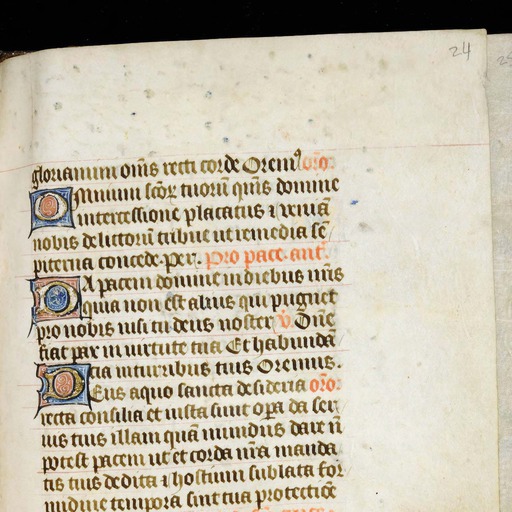 24
gloriamini om̄s recti corde Orem⁹ or̄o:
Omnium sc̄oꝝ tuorū qm̄s domine
intercessione placatus ⁊ veniā
nobis delictorū tribue ut remedia se
piterna concede. Per. Pro pace. ant̄.
Da pacem domine in diebus nr̄is
quia non est alius qui pugnet
pro nobis nisi tu deus noster ℣. Dn̄e
fiat pax in virtute tua Et habunda
cia in turribus tuis Oremus.
Deus a quo sancta desideria or̄o:
recta consilia et iusta sunt oꝑa da ser
uis tuis illam quā mundus dare n̄
potest pacem ut et corda nr̄a manda
tis tuis dedita ⁊ hostium sublata for
midine tempora sint tua protectiōe